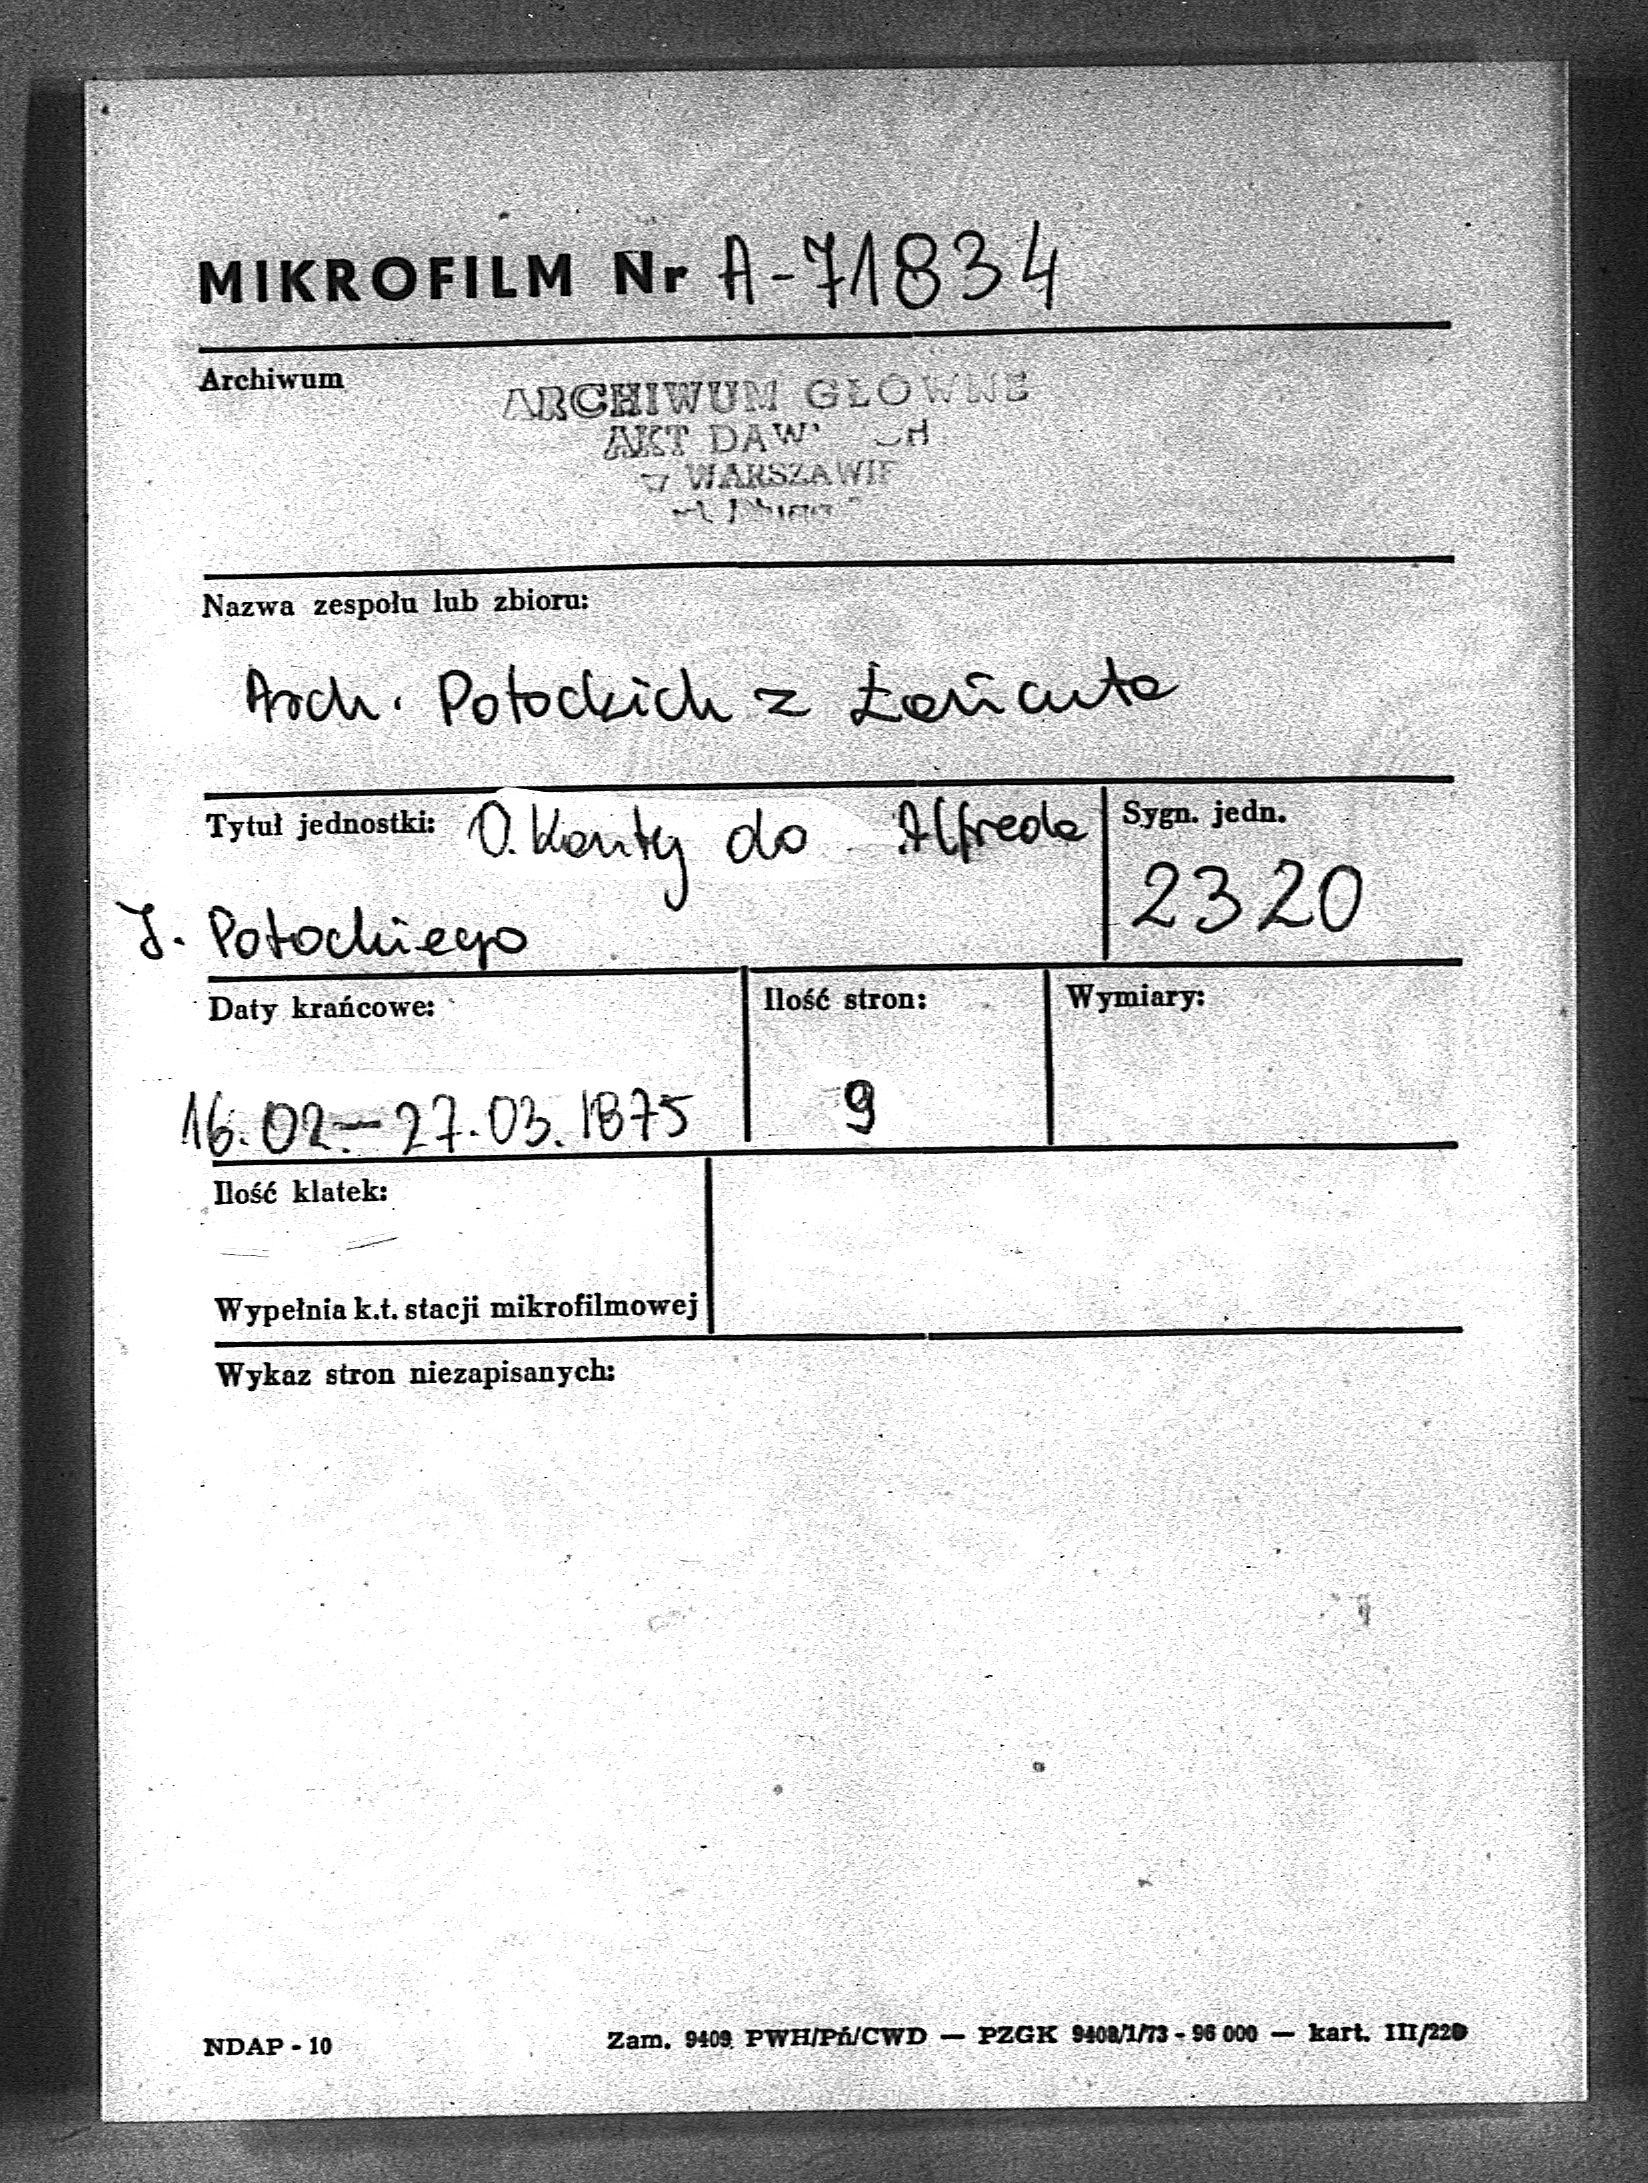 MIKROFILM Nr A-71834
Archiwum
ARCHIWUM GŁÓWNE
AKT
WARSZAWIE
Nazwa zespołu lub zbioru:
Arch. Potockich z Łańcuta
Tytuł jednostki: O. Kanty do Alfreda
J. Potockiego
Sygn. jedn.
2320
Daty krańcowe:
16.02.–27.03.1875
Ilość stron:
9
Wymiary:
Ilość klatek:
Wypełnia k.t. stacji mikrofilmowej
Wykaz stron niezapisanych:
NDAP - 10
Zam. 9409 PWH/Pń/CWD — PZGK 9408/1/73 - 96 000 — kart. III/220